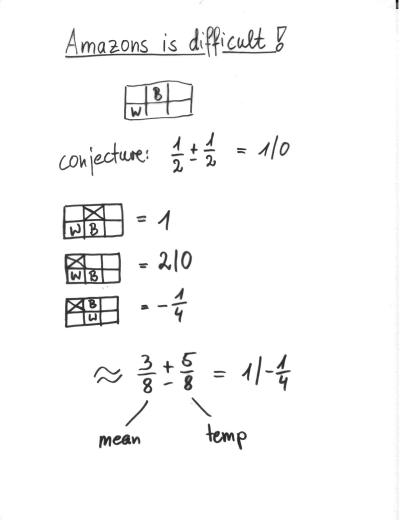 Amazons is difficult!
B
W
conjecture: 1/2 ± 1/2 = 1/0
W B = 1
W B = 2/0
B
W = -1/4
≈ 3/8 ± 5/8 = 1/-1/4
mean temp